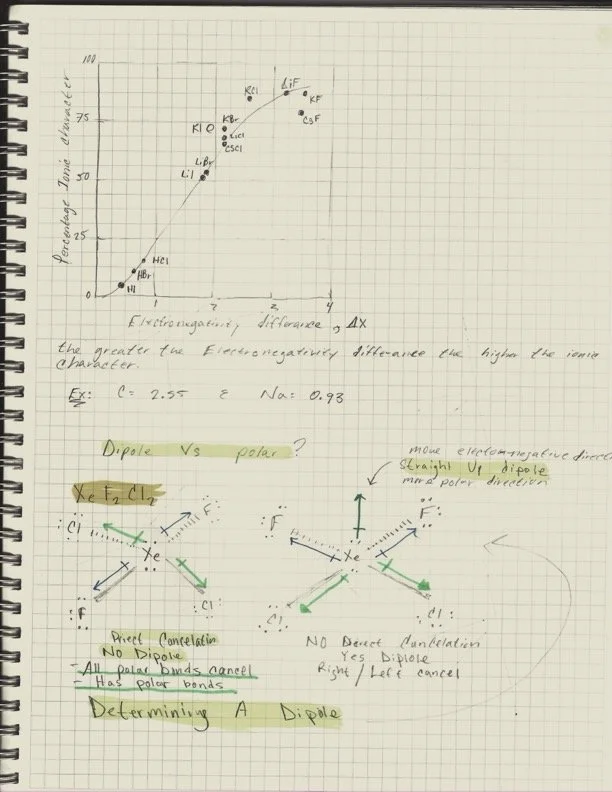 100
75
50
25
0
Percentage Ionic character
KCl
LiF
KF
CsF
KBr
KI
LiCl
CsCl
LiBr
LiI
HCl
HBr
HI
1
2
3
4
Electronegativity difference, ΔX
the greater the Electronegativity difference the higher the ionic
character.
Ex: C= 2.55 & Na= 0.93
Dipole Vs polar ?
more electronegative direct
Straight Up dipole
more polar direction
Xe F2 Cl2
:Cl
F:
Xe
:F
Cl:
:F
F:
Xe
:Cl
Cl:
Direct Cancelation
No Dipole
- All polar bonds cancel
- Has polar bonds
NO Direct Cancelation
Yes Diplole
Right / Left cancel
Determining A Dipole